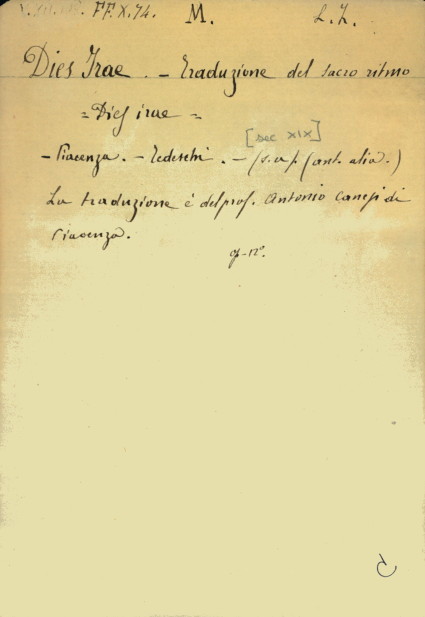 FF.X.74. M. L.L.
Dies Irae. - Traduzione del sacro ritmo
= Dies irae =
[sec XIX]
- Piacenza. - Tedeschi. - (s.a.) (ant. alia.)
La traduzione è del prof. Antonio Canepi di
Piacenza.
8-12°.